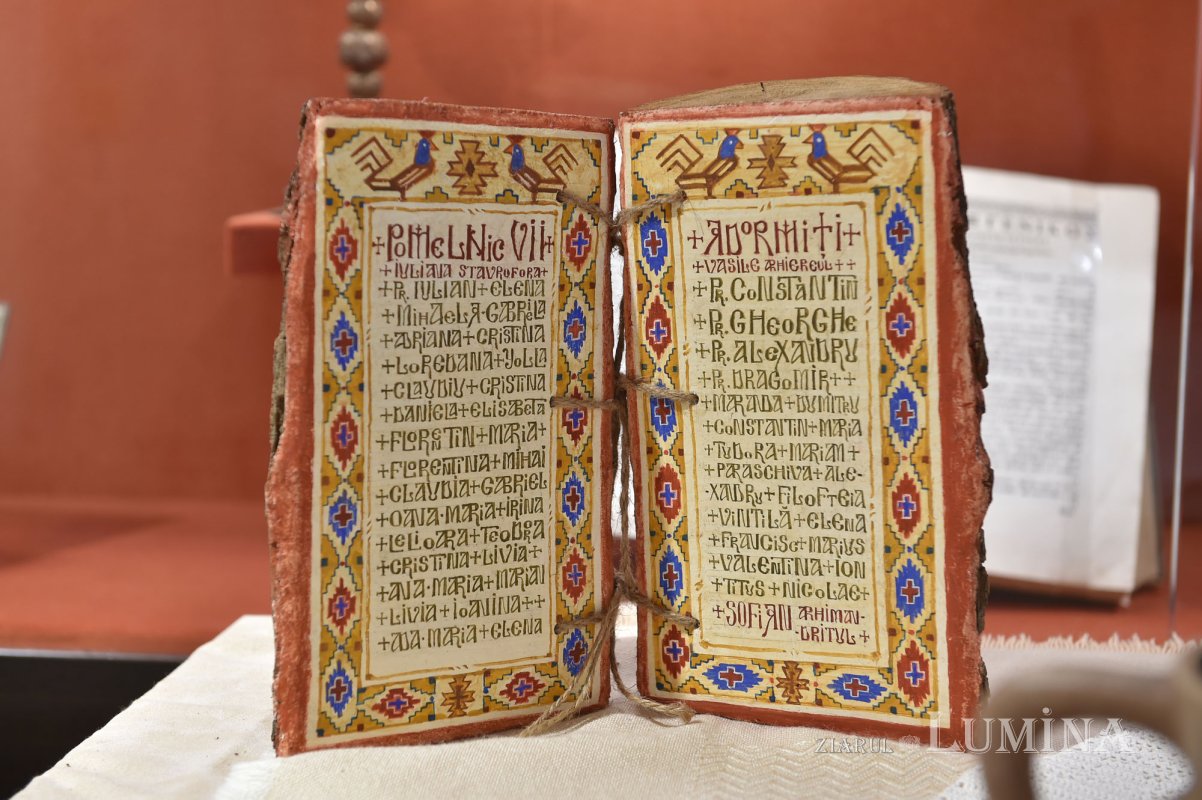 +POMELNIC VII+
+IULIANA STAVROFORA+
+PR. IULIAN+ELENA
+MIHAELA·GABRIELA
+ADRIANA+CRISTINA
+LOREDANA+YOLLA
+CLAUDIU+CRISTINA
+DANIELA+ELISABETA
+FLORETIN+MARIA+
+FLORENTINA+MIHAI
+CLAUDIA+GABRIEL
+OANA·MARIA+IRINA
+LELIOARA+TEODORA
+CRISTINA+LIVIA+
+ANA·MARIA+MARIAN
+LIVIA+IOANINA++
+ADA·MARIA+ELENA
+ADORMIȚI+
+VASILE ARHIEREUL++
+PR. CONSTANTIN
+PR. GHEORGHE
+PR. ALEXANDRU
+PR. DRAGOMIR++
+MARANDA+DUMITRU
+CONSTANTIN+MARIA
+TUDORA+MARIAM+
+PARASCHIVA+ALE-
-XANDRU+FILOFTEIA
+VINTILĂ+ELENA
+FRANCISC+MARIUS
+VALENTINA+ION
+TITUS+NICOLAE+
+SOFIAN ARHIMAN-
-DRITUL+
ZIARUL LUMINA